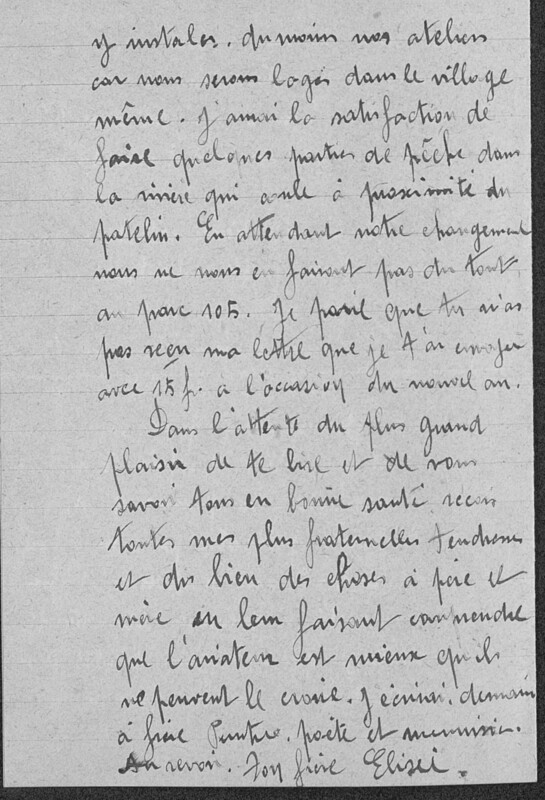 y instaler. du moins nos ateliers
car nous serons logés dans le village
même. J'aurai la satisfaction de
faire quelques parties de pêche dans
la rivière qui coule à proximité du
patelin. En attendant notre changement
nous ne nous en faisons pas du tout
au parc 105. Je parie que tu n'as
pas reçu ma lettre que je t'ai envoyer
avec 15 f. a l'occasion du nouvel an.
Dans l'attente du plus grand
plaisir de te lire et de vous
savoir tous en bonne santé, recois
toutes mes plus fraternelles tendresses
et dis bien des choses à père et
mère en leur faisant comprendre
que l'aviateur est mieux qu'ils
ne peuvent le croire. J'écrirai demain
à frère Peintre, poète et menuisier.
Au revoir. Ton frère Elisée.